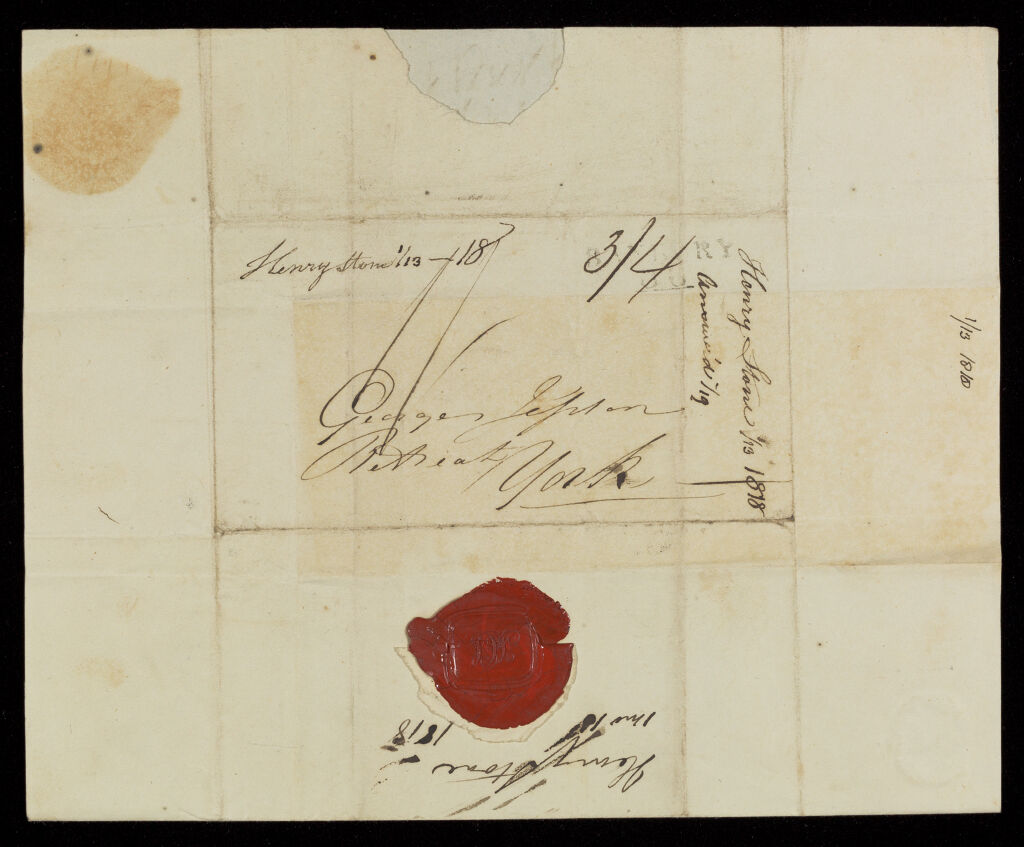 Henry Stone 1/13 - 18
3/4
George Jepson
Retreat
York
Henry Stone 1/13 1818
Answered 1/19
1/13 1818
Henry Stone
1 mo 13 1818